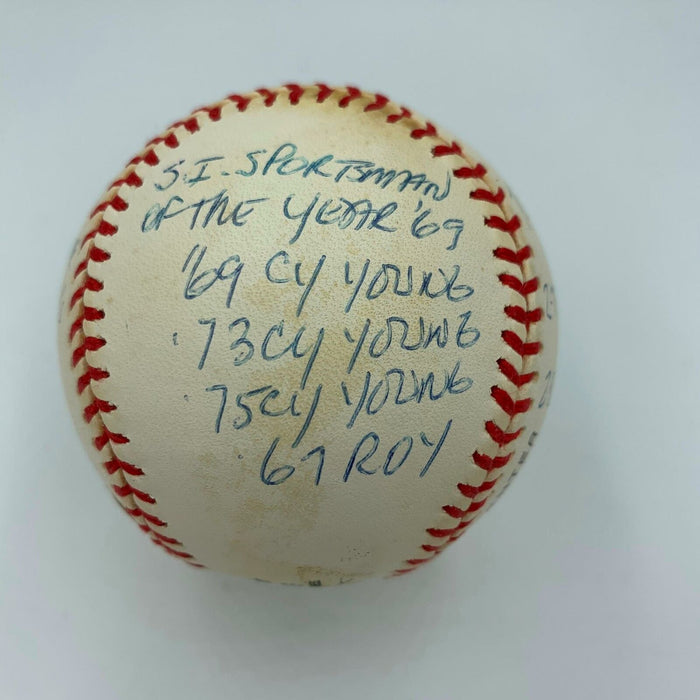 S.I. SPORTSMAN
OF THE YEAR '69
'69 CY YOUNG
'73 CY YOUNG
75 CY YOUNG
67 ROY